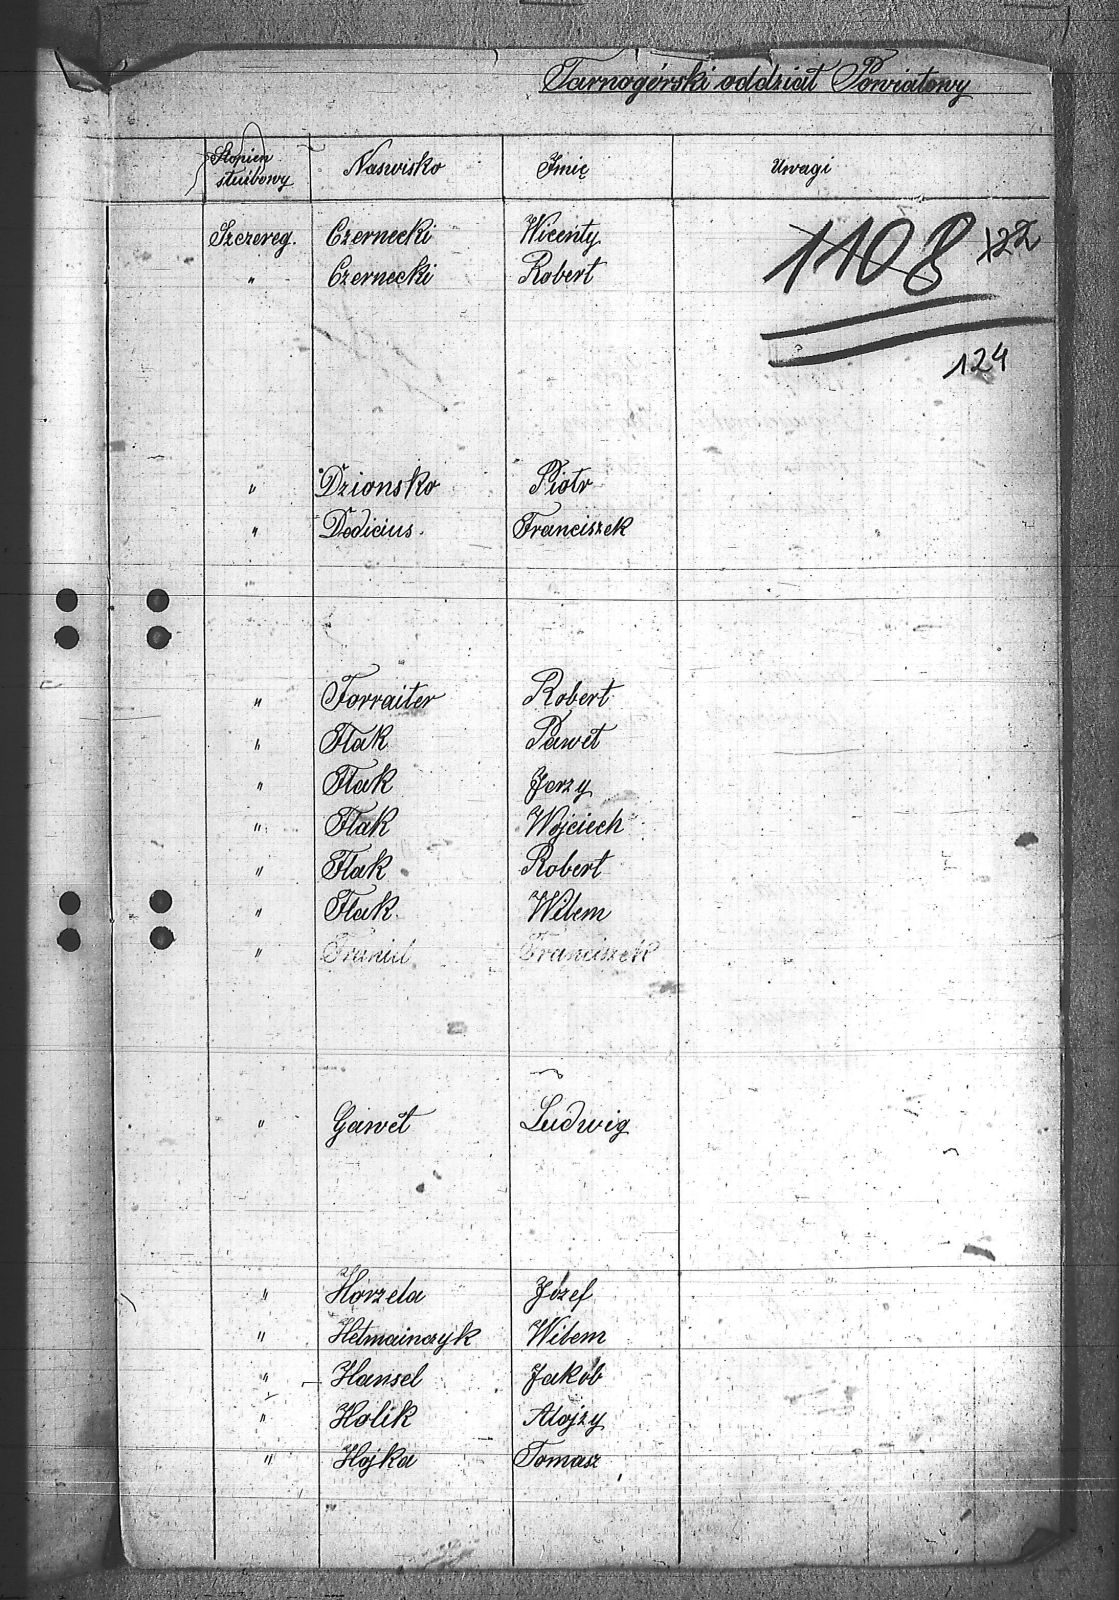 Tarnogórski oddział Powiatowy
Stopien służbowy Naswisko Imię Uwagi
Szczereg. Czernecki Wicenty 1108 122
" Czernecki Robert
124
" Dzionsko Piotr
" Dedicius. Franciszek
" Forraiter Robert
" Flak Paweł
" Flak Jerzy
" Flak Wojciech
" Flak Robert
" Flak. Wilem
" Franciszek
" Gaweł Ludwig
" Horzela Józef
" Hetmainczyk Wilem
" Hansel Jakób
" Holik Alojzy
" Hojka Tomasz